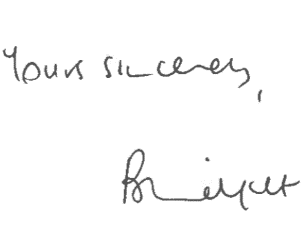 Yours sincerely,
Bridget